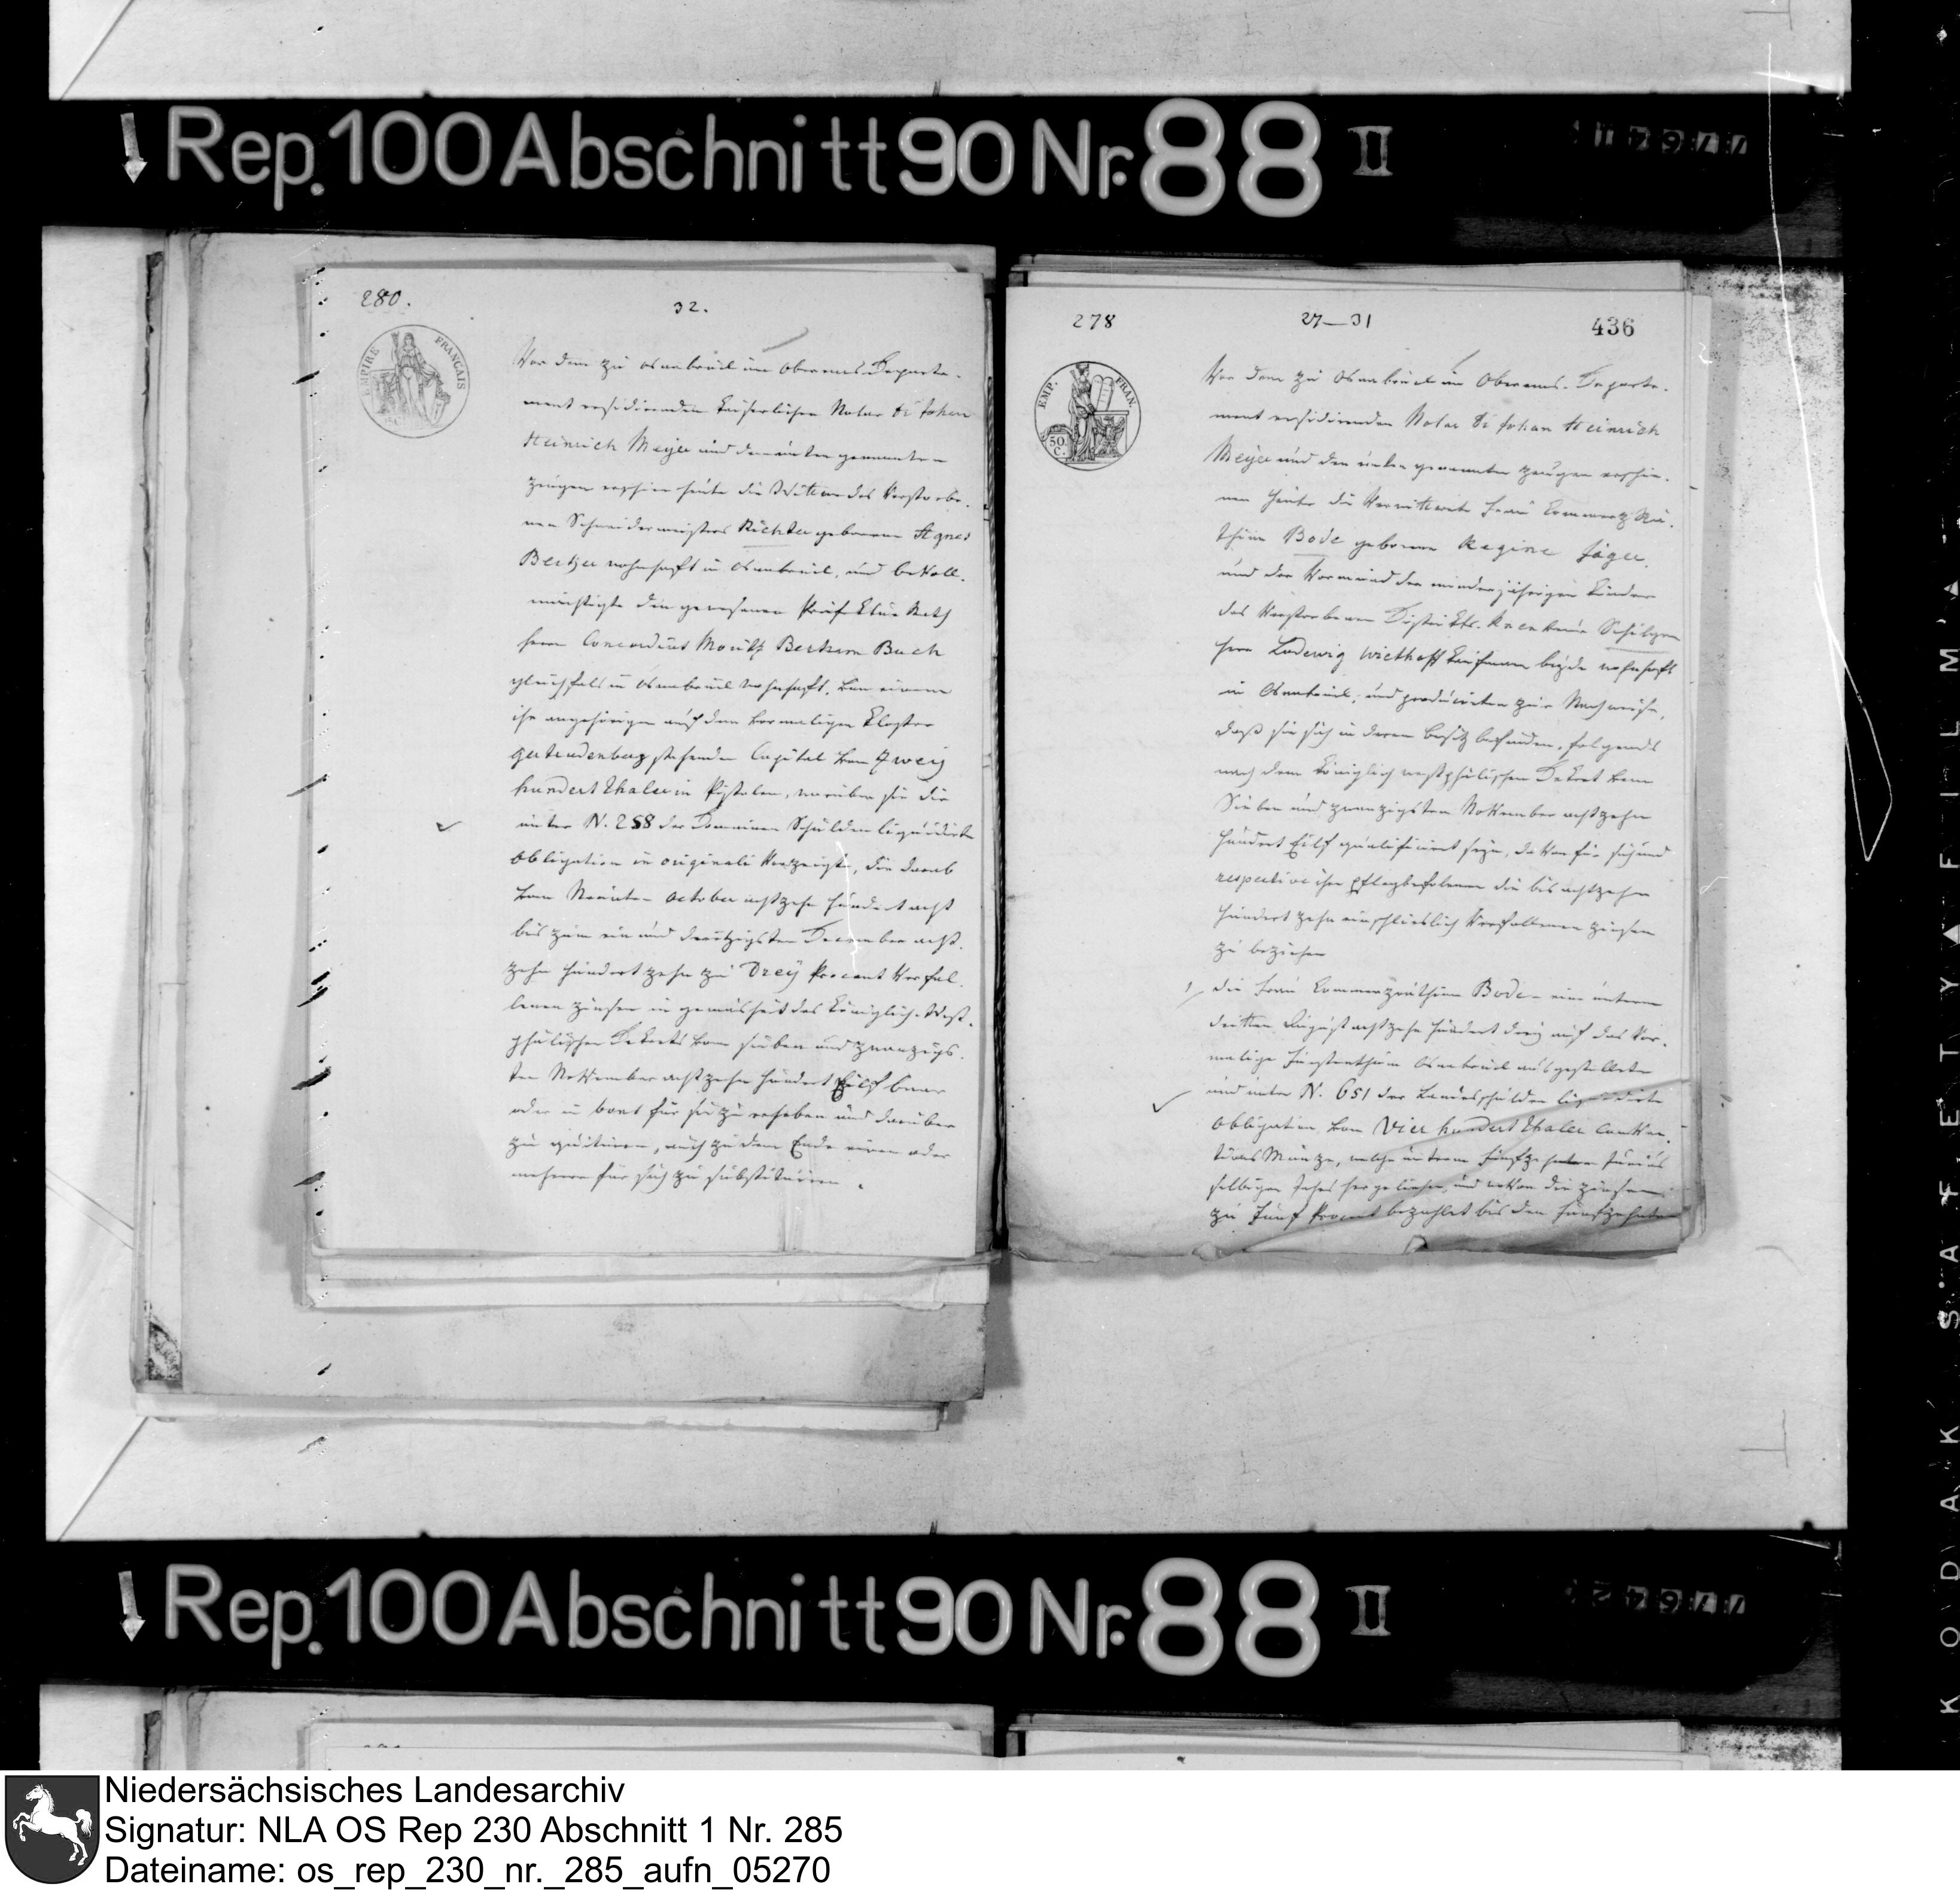 Rep. 100 Abschnitt 90 Nr. 88 II
280.
32.
EMPIRE FRANÇAIS
Vor dem zu Osnabrück im Oberems Departe-
ment residirenden Kaiserlichen Notar Dr Johan
Heinrich Meyer und den unten genannten
Zeugen erschien heute die Wittwe des Verstorbe-
nen Schneidermeisters Richter geborene Agnes
Bertzer wohnhaft in Osnabrück, und bevoll-
mächtigte den gewesenen Präfektur Rath
Herrn Concordius Moritz Bertram Buch
gleichfals in Osnabrück wohnhaft, von einem
ihr angehörigen auf dem vormaligen Kloster
gertrudenberg stehenden Capital von Zwey
hundert Thaler in Pistolen, worüber sie die
unter N. 258 der Domainen Schulden liquidirte
Obligation in originali vorzeigte, die davon
vom Neunten October achtzehn hundert acht
bis zum ein und dreitzigsten December acht-
zehn hundert zehn zu Drey Procent verfal-
lenen Zinsen in gemäsheit des Königlich-West-
phälischen Dekrets vom sieben und zwanzigs-
ten November achtzehn hundert Eilf baar
oder in bons für sie zu erheben und darüber
zu quitiren, auch zu dem Ende einen oder
mehrere für sich zu substituiren.
278
27—31
436
EMP. FRAN.
50 C.
Vor dem zu Osnabrück im Oberems-Departe-
ment residirenden Notar Dr Johan Heinrich
Meyer und den unten genannten Zeugen erschie-
nen heute die Verwittwete Frau Commerz Rä-
thin Bode geborene Regine Jäger,
und der Vormund der minderjährigen Kinder
des Verstorbenen Distrikts-
Herr Ludewig Wiethoff Kaufmann beyde wohnhaft
in Osnabrück, und producirten zur Nachweise,
daß sie sich in deren Besitz befinden, folgends
nach dem Königlich westphälischen Dekret vom
Sieben und zwanzigsten November achtzehn
hundert Eilf qualificirt seyn, davon für sich und
respective ihre Pflegbefohlenen die bis achtzehn
hundert zehn einschlieslich Verfallenen Zinsen
zu beziehen
1, die Frau Commerzräthinn Bode - eine unterm
dritten August achtzehn hundert drey auf das Vor-
malige Fürstenthum Osnabrück ausgestellete
und unter N. 651 der Landesschulden liquidirte
Obligation von Vier hundert Thaler Conven-
tions Münze, welche unterm fünfzehnten Junius
selbigen Jahrs hergeliehen, und wovon die Zinsen
zu Fünf Procent bezahlet bis den fünfzehnten
Rep. 100 Abschnitt 90 Nr. 88 II
KODAK SAFETY FILM
Niedersächsisches Landesarchiv
Signatur: NLA OS Rep 230 Abschnitt 1 Nr. 285
Dateiname: os_rep_230_nr._285_aufn_05270